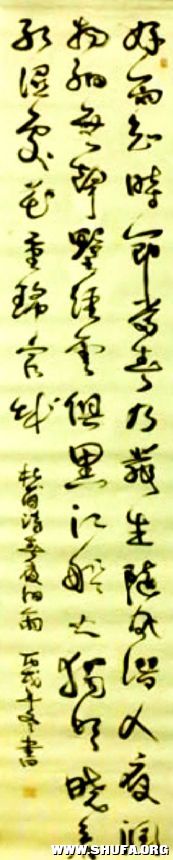 好雨知時節當春乃發生隨風潛入夜潤
物細無聲野徑雲俱黑江船火獨明曉看
紅濕處花重錦官城
杜甫詩春夜雨 丙戌冬書
WWW.SHUFA.ORG